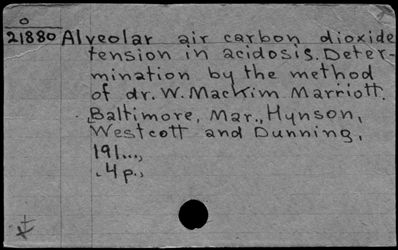 o
21880 Alveolar air carbon dioxide
tension in acidosis. Deter-
mination by the method
of dr. W. MacKim Marriott.
Baltimore, Mar., Hynson,
Westcott and Dunning,
191...,
4 p.